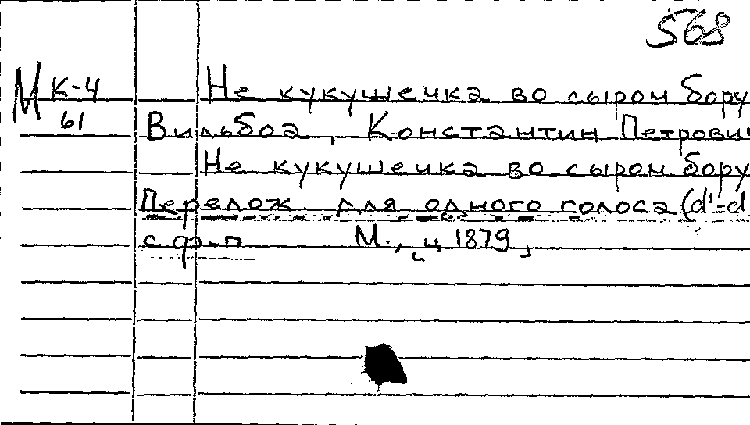 568
М К-4 Не кукушечка во сыром бору
61 Вильбоа, Константин Петрович
Не кукушечка во сыром бору
Перелож. для одного голоса (d'-d
с ф.-п. М., ц. 1879,